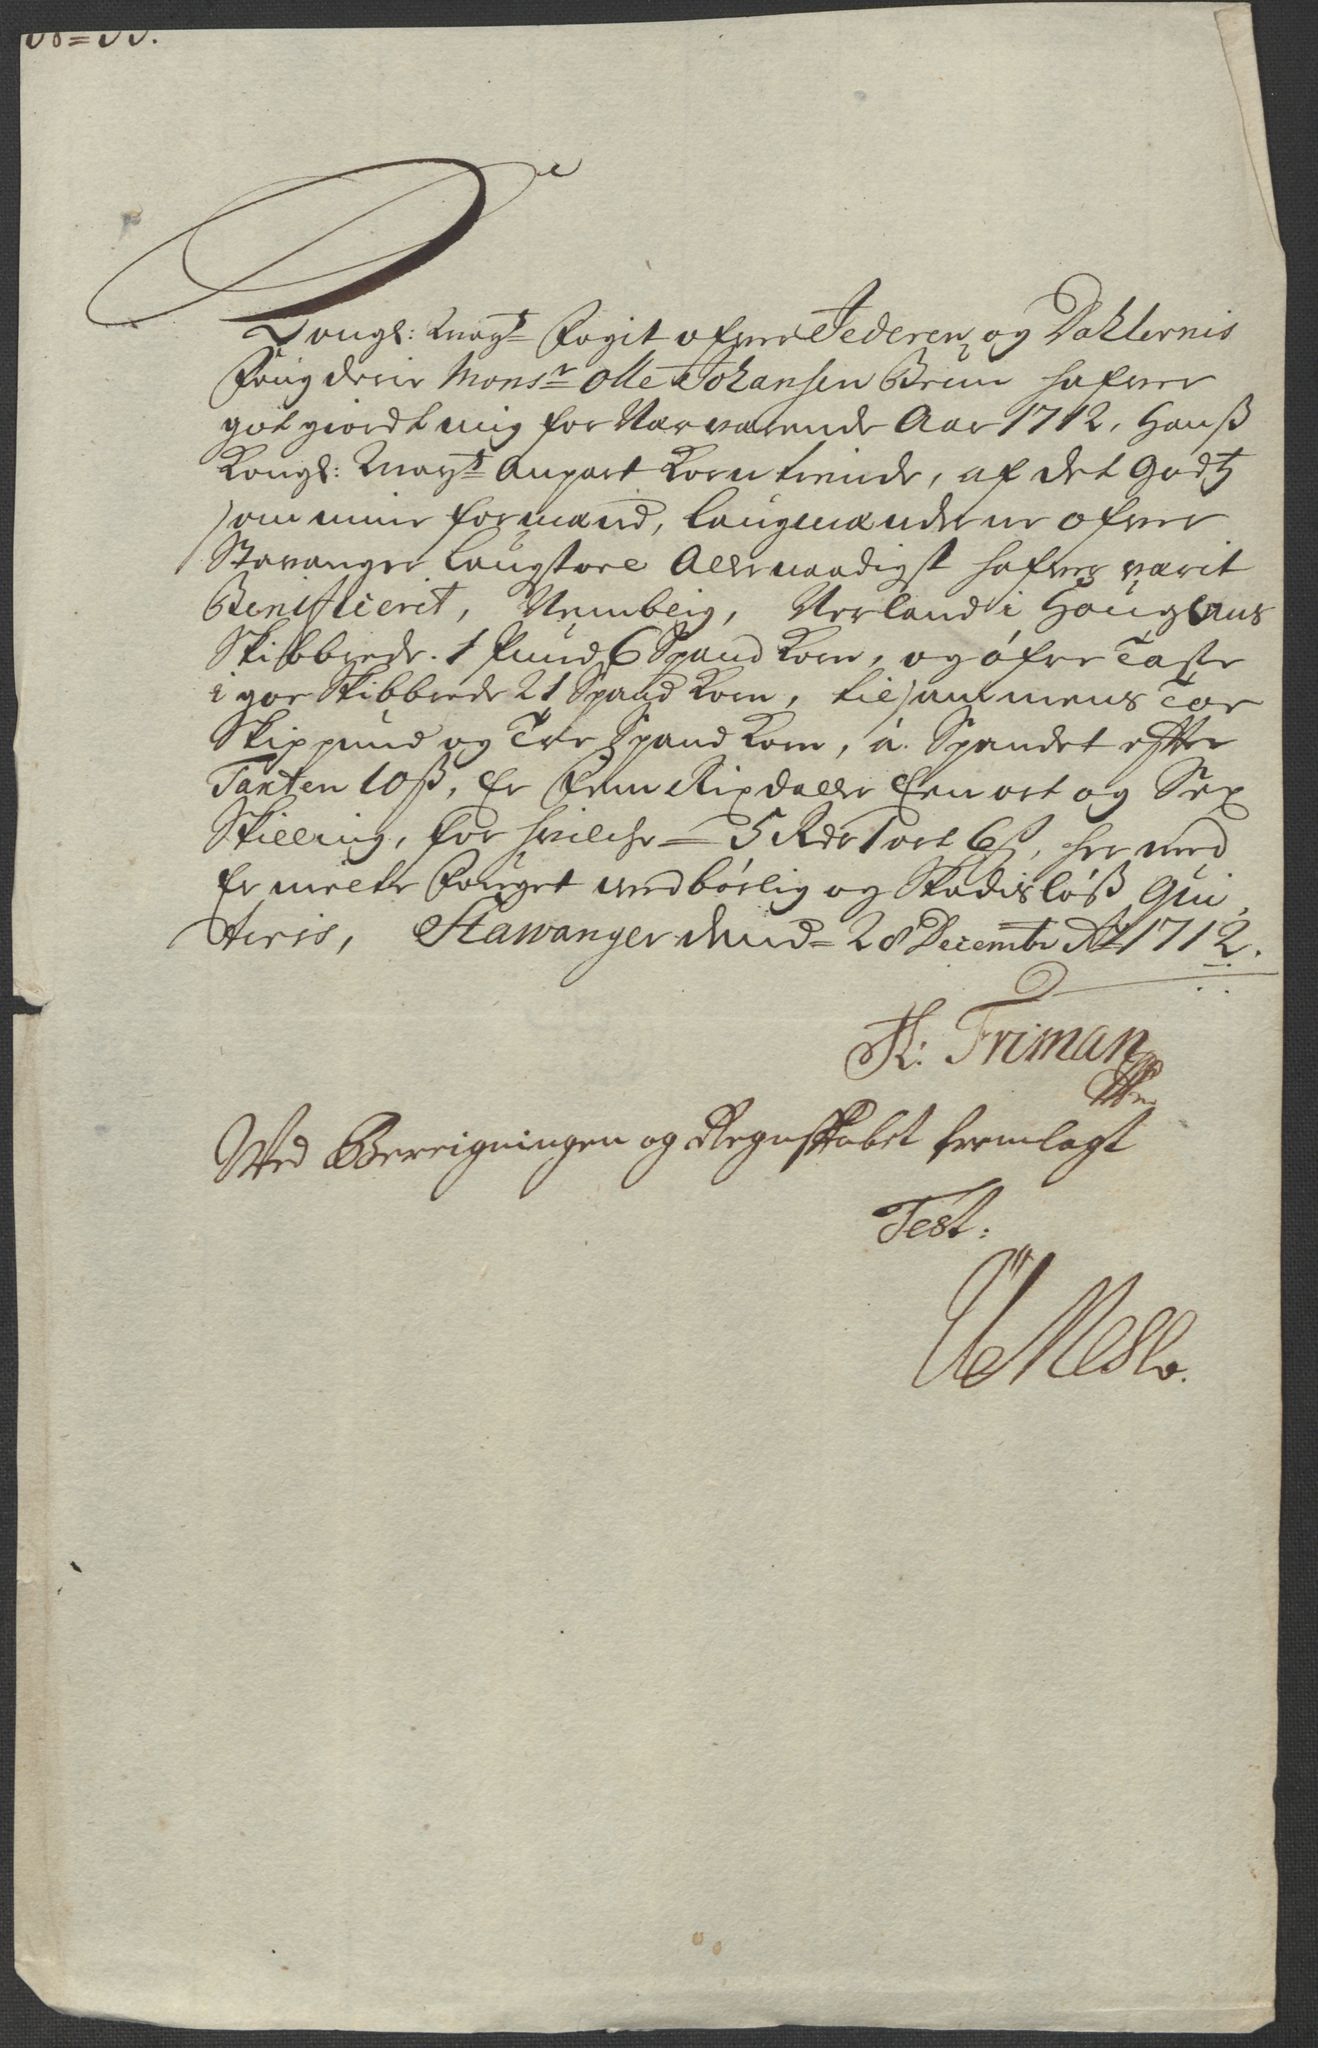 Kongl: Mayts Fogit ofver Jederen og Dahlernis
Fougderie Monsr Olle Johansen Brun hafver
got giordt mig for Nærværende Aar 1712, Hanß
Kongl: Mayts Anpart Korn tiende, af det Godtz
som mine formænd, Laugmændene ofver
Stavanger Laugstoel Allernaadigst hafver værit
Benificerit, Verland i
Skibbrede. 1 Pund 6 Spand Korn, og øfre Taste
i goe Skibbrede 21 Spand Korn, tilsammens Toe
Skippund og Tre Spand Korn, á. Spandet efter
Taxten 10 ß, Er Fem Rixdaller Een ort og Sex
Skilling, for hvilche = 5 Rdr 1 ort 6 ß, her med
Er melte Fouget ved børlig og Skadisløß Qui,
teris, Stawanger dend = 28 Decembr Ao 1712.
H. Friman
Wed Bereigningen og Regnskabet fremlagt
Test: